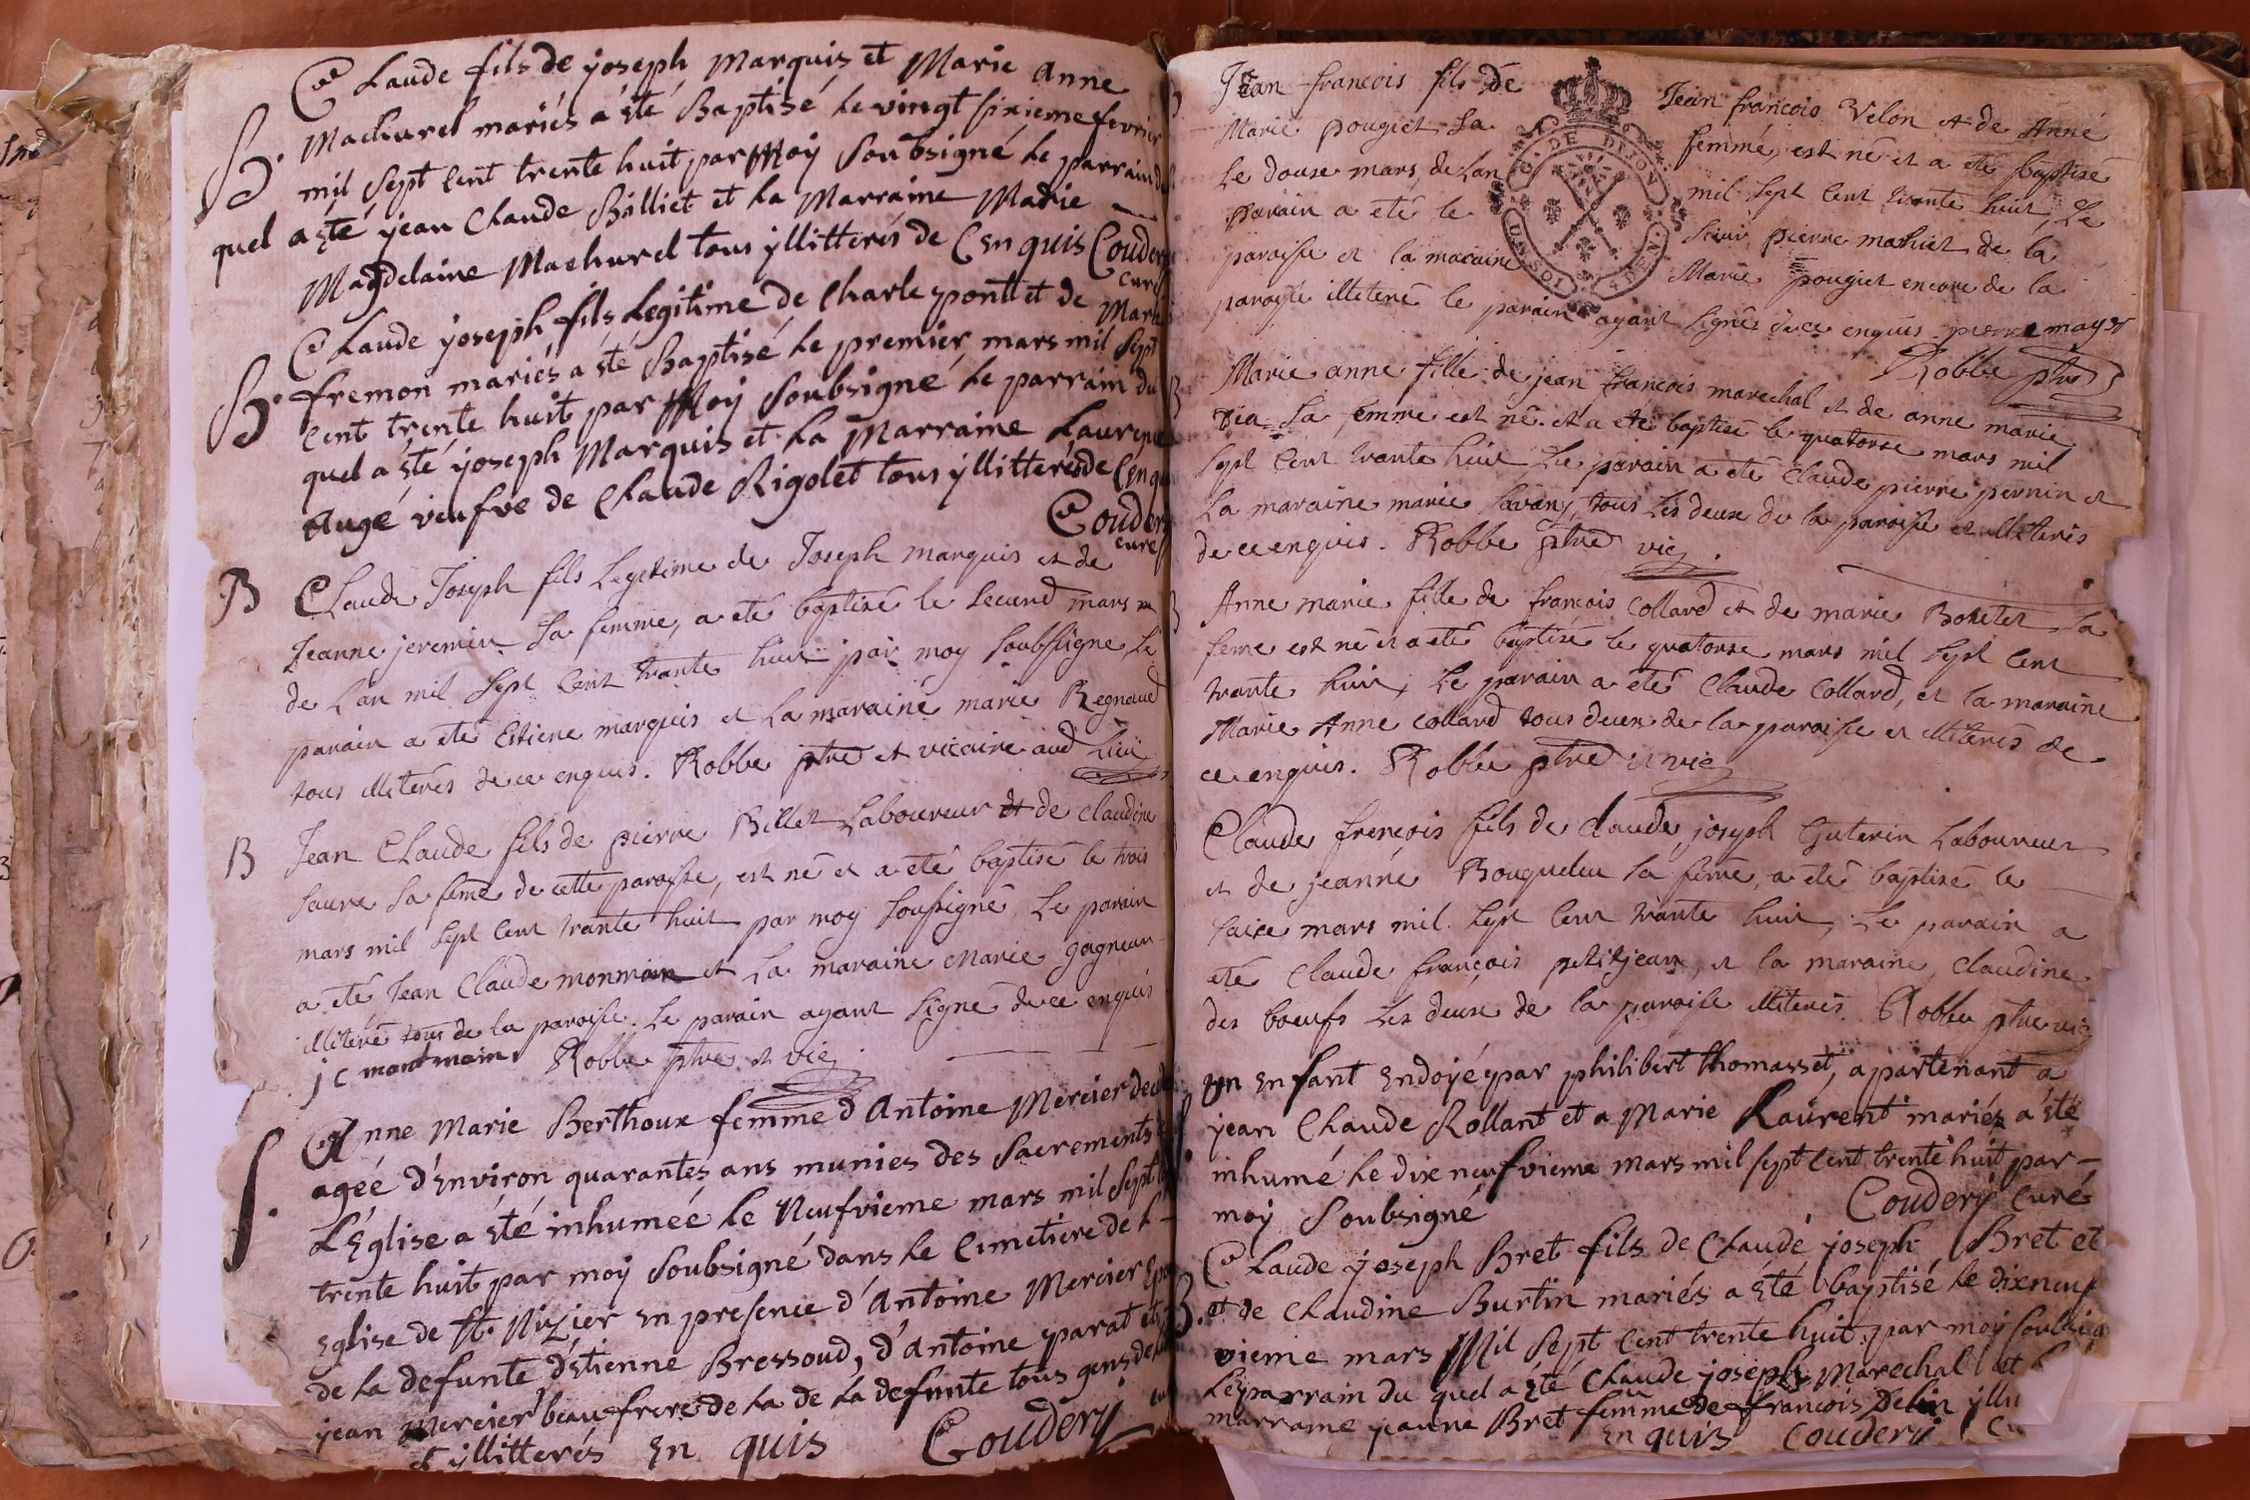 Claude fils de yoseph Marquis et Marie Anne
B. Machurel mariés a été Baptisé le vingt sixieme fevrier
mil sept cent trente huit par Moy soubsigné le parrain du
quel a été yean Claude Billiet et la Marraine Marie
Magdelaine Machurel tous yllitterés de Cen quis Coudery
curé
Claude yoseph fils legitime de Charle pont et de Marie
B. fremon mariés a été Baptisé le premier mars mil sept
cent trente huit par Moy soubsigné le parrain du
quel a été yoseph Marquis et la Marraine Laurence
Augé veufve de Claude Rigolet tous yllitterés de Cen quis
Coudery
curé
B Claude Joseph fils Legitime de Joseph marquis et de
Jeanne jeremin sa femme, a eté baptisé le second mars
de L'an mil sept cent trante huit par moy soubsigné Le
parain a eté Estiene marquis et La maraine marie Regnaud
tous illiterés de ce enquis. Robbe ptre et vicaire aud Lieu
B Jean Claude fils de pierre Billet Laboureur et de claudine
faure sa feme de cette paroisse, est né et a eté baptisé le trois
mars mil sept cent trante huit par moy soussigné Le parain
a eté Jean Claude monmain et La maraine Marie gagneur
illiteré tous de la paroisse. Le parain ayant signé de ce enquis
j c montmain Robbe ptre et vic
S. Anne Marie Berthoux femme d'Antoine Mercier
ageé d'Environ quarantes ans munies des Sacrements
L'Église a été inhumeé le Neufvieme mars mil sept
trente huit par moy Soubsigné dans le Cimetiere de L-
Eglise de St. Nizier en presence d'Antoine Mercier
de la defunte d'Etienne Bressoud, d'Antoine parat et
jean Mercier beaufrere de la de la defunte tous gens de
et yllitterés En quis Coudery
Jean francois fils de Jean francois Velon et de Anné
Marie pougiet sa femmé, est né et a eté baptisé
Le douse mars, de Lan mil sept cent trante huit, Le
parain a eté le sieur pierre mathiet de la
paroisse et la maraine Marie pougiet encore de la
DE DIJON
paroisse illeteré le parain ayant signés de ce enquis pierre mayet
Robbe ptre
Marie anne fille de jean francois marechal et de anne marie
sa femme est né et a eté baptisé le quatorse mars mil
sept cent trante huit Le parain a eté Claude pierre pernin et
La maraine marie tous Les deux de la paroisse et illiterés
de ce enquis. Robbe ptre vic
Anne marie fille de francois Collard et de marie sa
feme est né et a eté baptisé le quatorse mars mil sept cent
trante huit, Le parain a eté Claude Collard, et la maraine
Marie Anne Collard tous deux de la paroisse et illiterés de
ce enquis. Robbe ptre et vic
Claude frençois fils de Claude joseph Guterin Laboureur
et de jeanné Bouqueleu sa feme, a eté baptisé le
saise mars mil sept cent trante huit, Le parain a
eté Claude françois petitjean, et la maraine Claudine
des boeufs Les deux de la paroisse illiterés Robbe ptre vic
Un Enfant Endoyé par philibert thomasset, apartenant a
jean Claude Rollant et a Marie Laurent mariés a été
inhumé le dix neufvieme mars mil sept cent trente huit par-
moy soubsigné Coudery Curé
Claude yoseph Bret fils de Claude yoseph Bret et
B. et de Claudine Burtin mariés a été baptisé le dixneuf
vieme mars Mil sept cent trente huit par moy
Le parrain du quel a été Claude yoseph Marechal et
marraine yeanne Bret femme de françois Delin
en quis Coudery